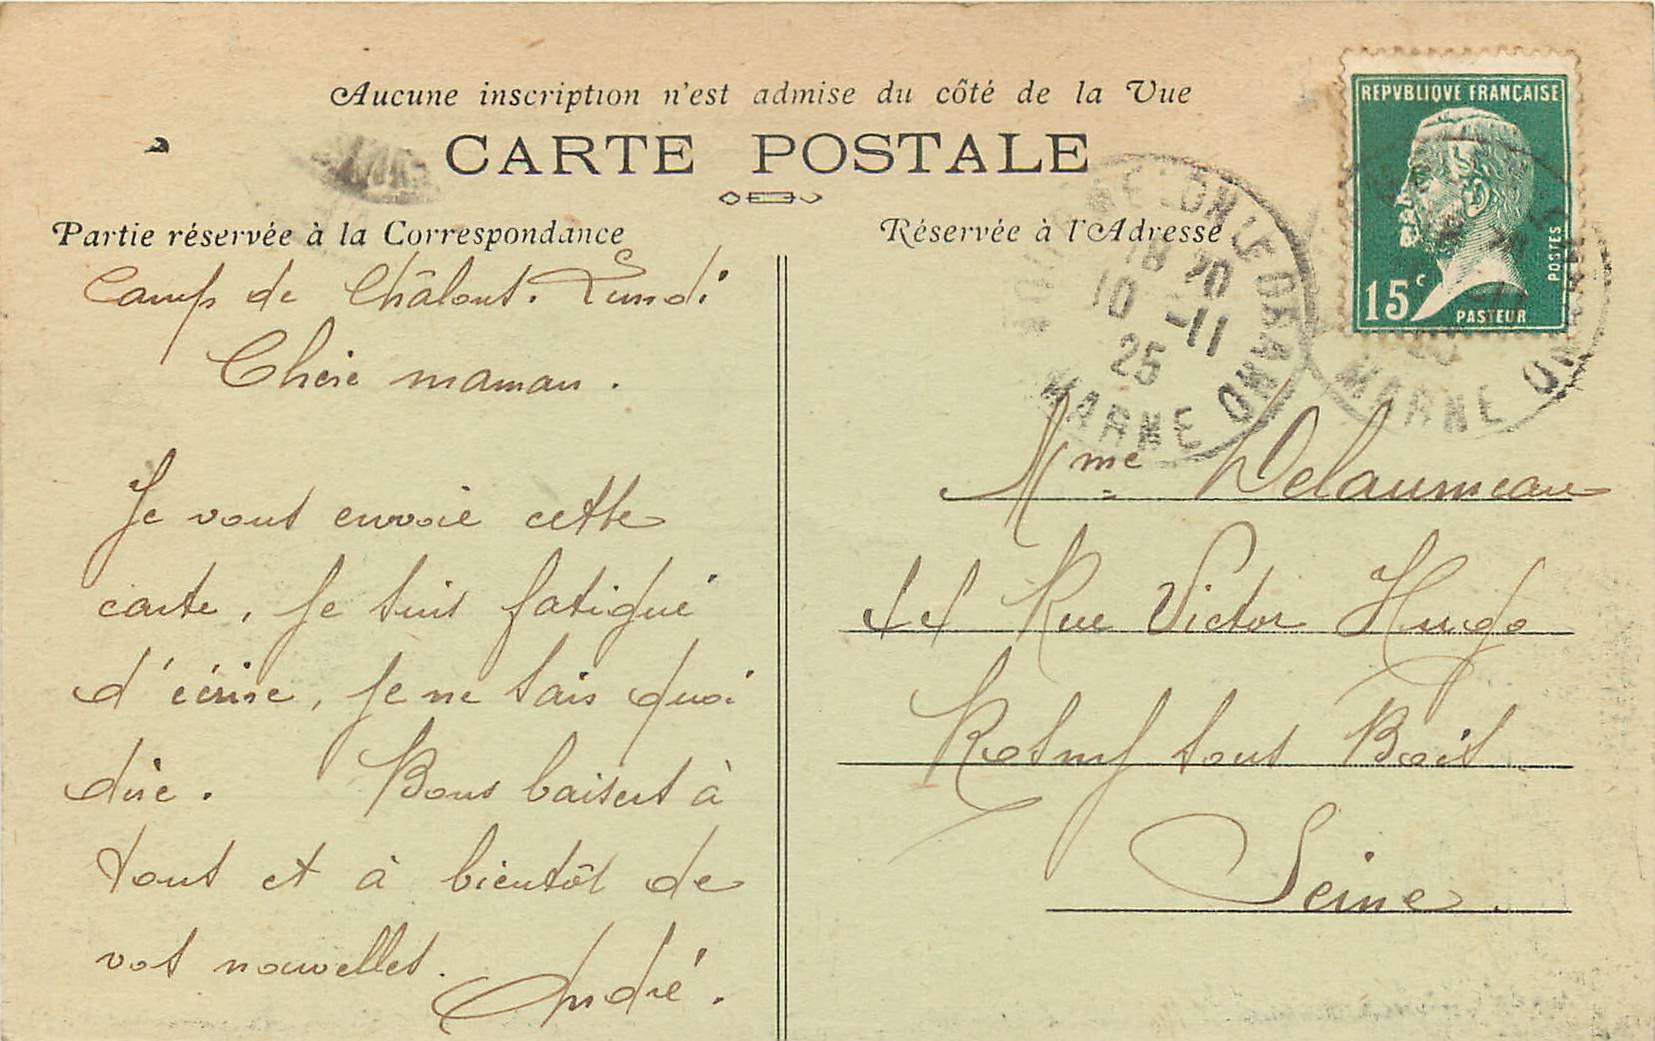 Aucune inscription n'est admise du côté de la Vue
CARTE POSTALE
Partie réservée à la Correspondance
Réservée à l'Adresse
REPVBLIQVE FRANÇAISE
POSTES
15c
PASTEUR
18 20
10 -11
25
MARNE
MARNE
Camp de Châlons. Lundi
Chère maman.
Je vous envoie cette
carte, je suis fatigué
d'écrire, je ne sais quoi
dire. Bons baisers à
tous et à bientôt de
vos nouvelles.
André.
Mme Delaumeau
Rue Victor Hugo
Rosny sous Bois
Seine.